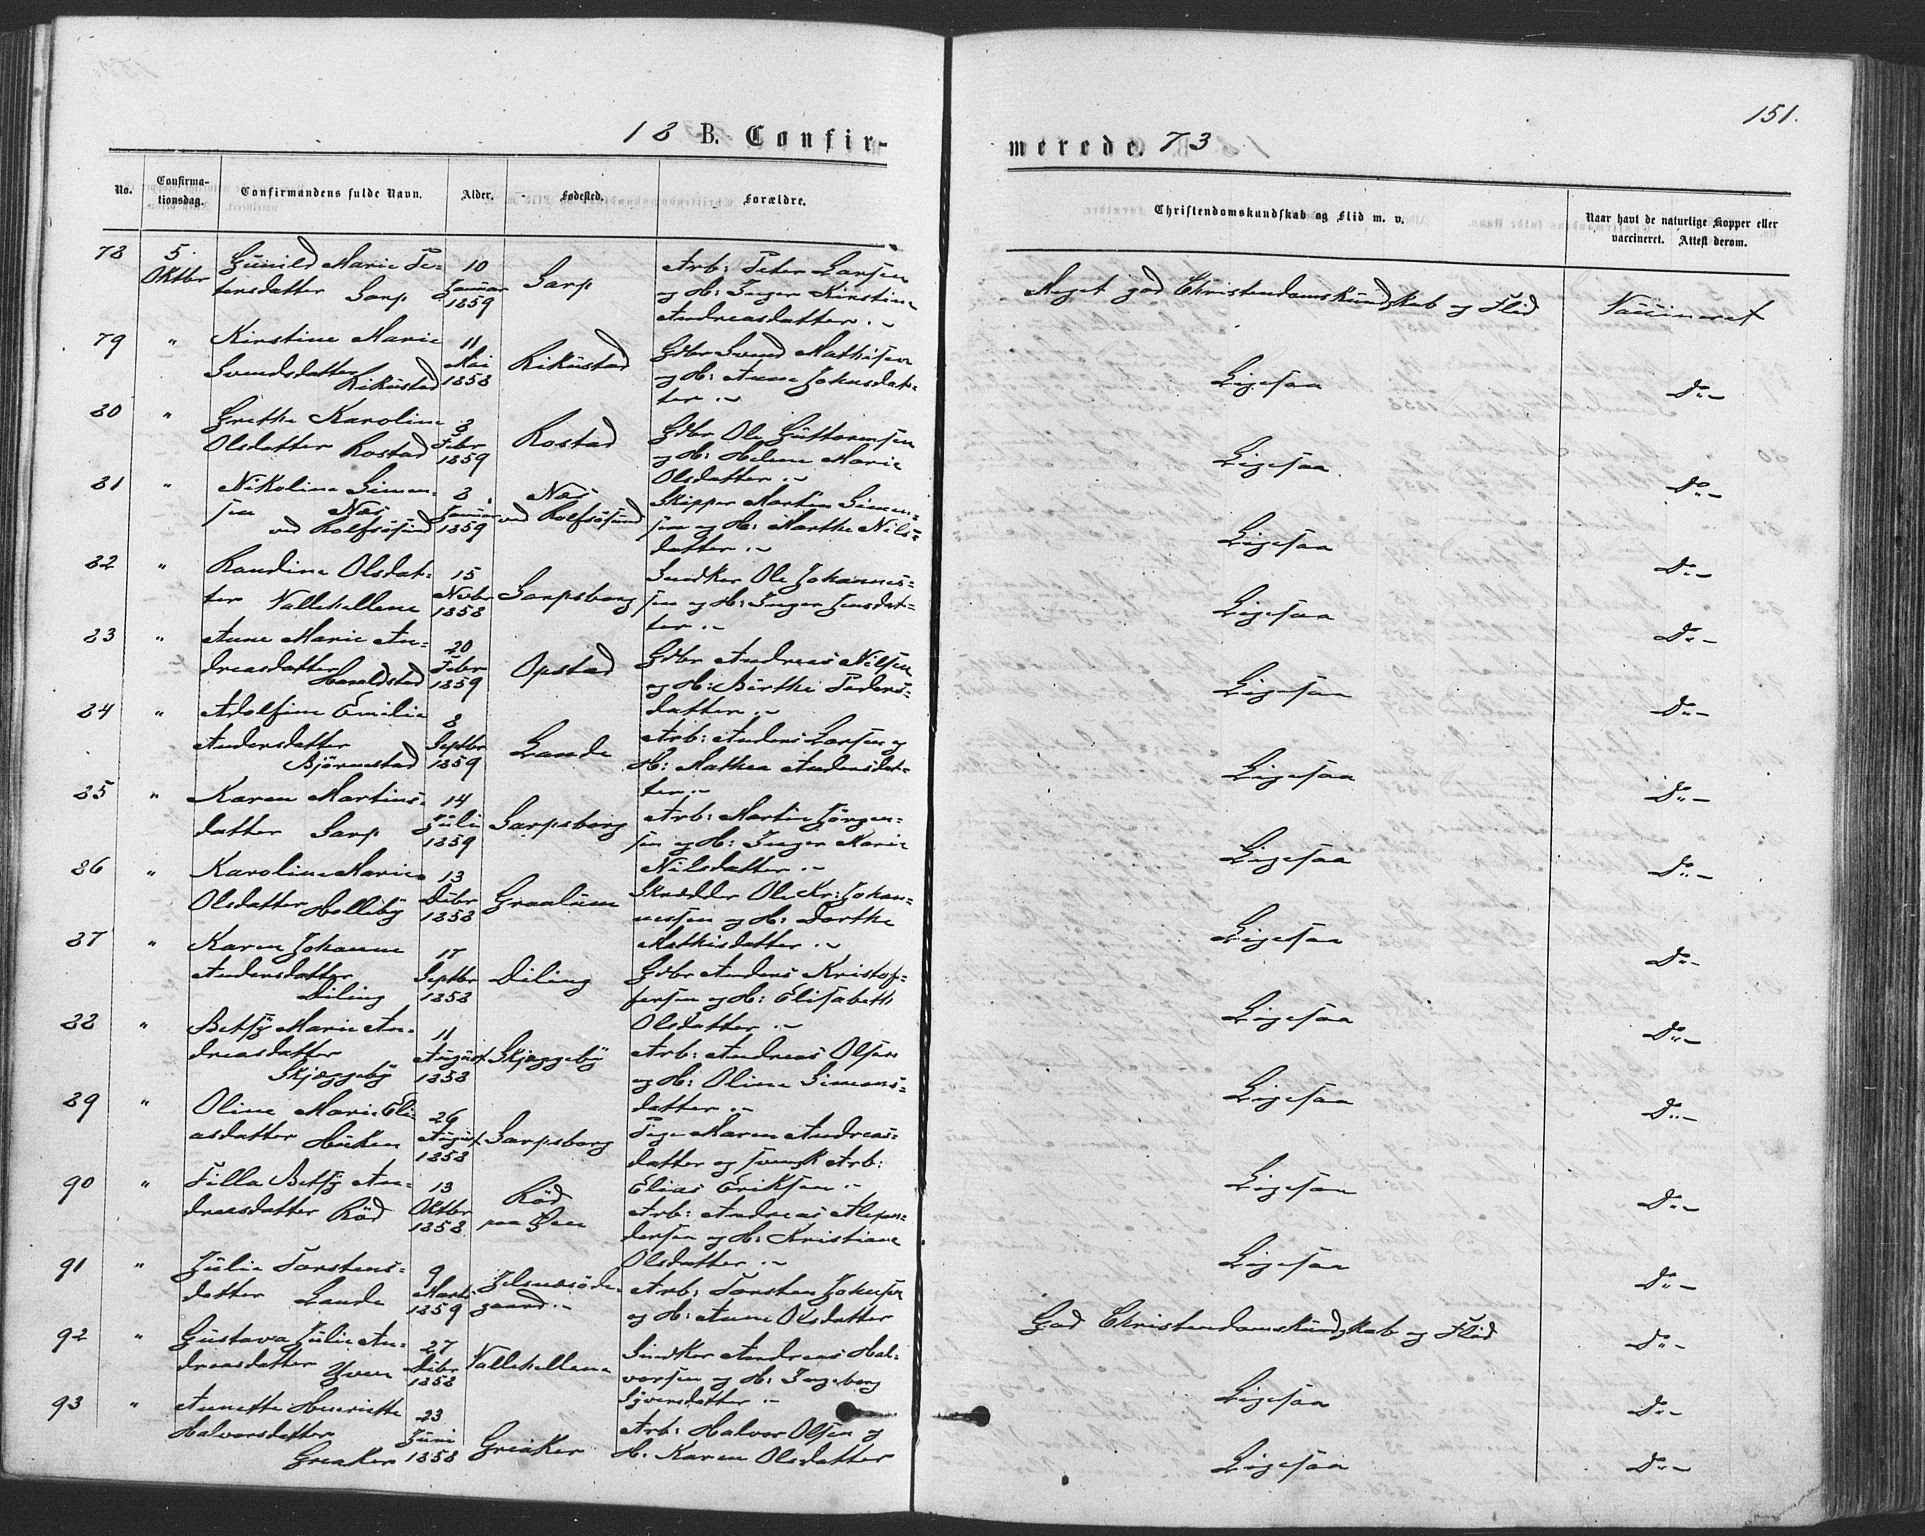 151.
18 B. Confir-
merede. 73
No.
Confirma-
tionsdag.
Confirmandens fulde Navn.
Alder.
Fødested.
Forældre.
Christendomskundskab og Flid m. v.
Naar havt de naturlige Kopper eller
vaccineret. Attest derom.
78
5.
Oktbr
Gunild Marie Pe-
tersdatter Sarp
10
Januar
1859
Sarp
Arb: Peter Larsen
og H: Inger Kirstine
Andreasdatter.
Meget god Christendomskundskab og Flid
Vaccineret
79
"
Kirstine Marie
Svendsdatter
Rikustad
11
Mai
1858
Rikustad
Gdbr Svend Mathisen
og H: Anne Johnsdat-
ter.
Ligesaa
Do
80
"
Grethe Karoline
Olsdatter Rostad
8
Febr
1859
Rostad
Gdbr Ole Guttormsen
og H: Helene Marie
Olsdatter.
Ligesaa.
Do
81
"
Nikoline Simen-
sen Næs
ved Rolfsøsund
8
Januar
1859
Næs
ved Rolfsøsund
Skipper Martin Simen-
sen og H: Marthe Nils-
datter.
Ligesaa
Do
82
"
Randine Olsdat-
ter Vallehellene
15
Novbr
1858
Sarpsborg
Snedker Ole Johannes-
sen og H: Inger Jensdat-
ter.
Ligesaa
Do
83
"
Anne Marie An-
dreasdatter
Haraldstad
20
Febr
1859
Opstad
Gdbr Andreas Nilsen
og H: Birthe Peders-
datter.
Ligesaa
Do
84
"
Adolfine Emilie
Andersdatter
Bjørnestad
8
Septbr
1859
Lande
Arb: Anders Larsen og
H: Mathea Andersdat-
ter.
Ligesaa
Do
85
"
Karen Martins-
datter Sarp
14
Juli
1859
Sarpsborg
Arb: Martin Jørgen-
sen og H: Inger Marie
Nilsdatter.
Ligesaa
Do
86
"
Karoline Marie
Olsdatter Holleby
13
Debr
1858
Graalum
Skrædder Ole Kr: Johan-
nessen og H: Dorthe
Mathisdatter.
Ligesaa
Do
87
"
Karen Johanne
Andersdatter
Diling
17
Septbr
1858
Diling
Gdbr Anders Kristof-
fersen og H: Elisabeth
Olsdatter.
Ligesaa
Do
88
"
Betsy Marie An-
dreasdatter
Skjæggeby
11
August
1858
Skjæggeby
Arb: Andreas Olsen
og H: Oline Simens-
datter.
Ligesaa
Do
89
"
Oline Marie Eli-
asdatter Haken
26
August
1858
Sarpsborg
Pige Maren Andreas-
datter og svensk Arb:
Elias Eriksen.
Ligesaa
Do
90
"
Filla Betsy An-
dreasdatter Rød
13
Oktbr
1858
Rød
paa Øen
Arb: Andreas Alexan-
dersen og H: Kristiane
Olsdatter.
Ligesaa
Do
91
"
Julie Torstens-
datter Lande
9
Marts
1859
Jelsnesøde-
gaard.
Arb: Torsten Johnsen
og H: Anne Olsdatter
God Christendomskundskab og Flid
Do
92
"
Gustava Julie An-
dreasdatter Yven
27
Debr
1858
Vallehellene
Snedker Andreas Hal-
vorsen og H: Ingeborg
Syversdatter.
Ligesaa
Do
93
"
Annette Henriette
Halvorsdatter
Greaker
23
Juni
1858
Greaker
Arb: Halvor Olsen og
H: Karen Olsdatter
Ligesaa
Do